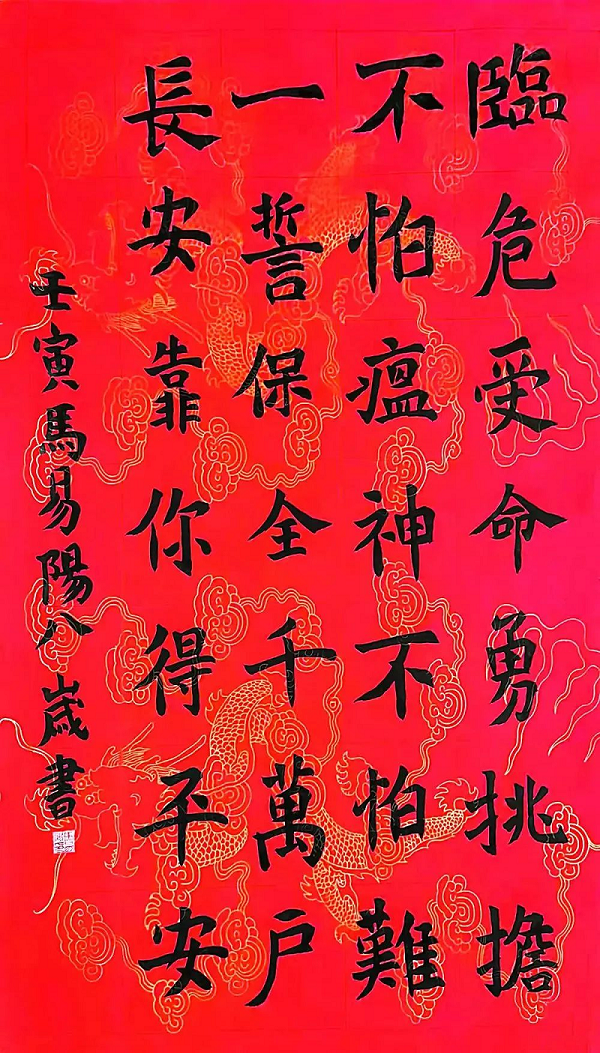 臨危受命勇挑擔
不怕瘟神不怕難
一誓保全千萬戶
長安靠你得平安
壬寅馬易陽八歲書